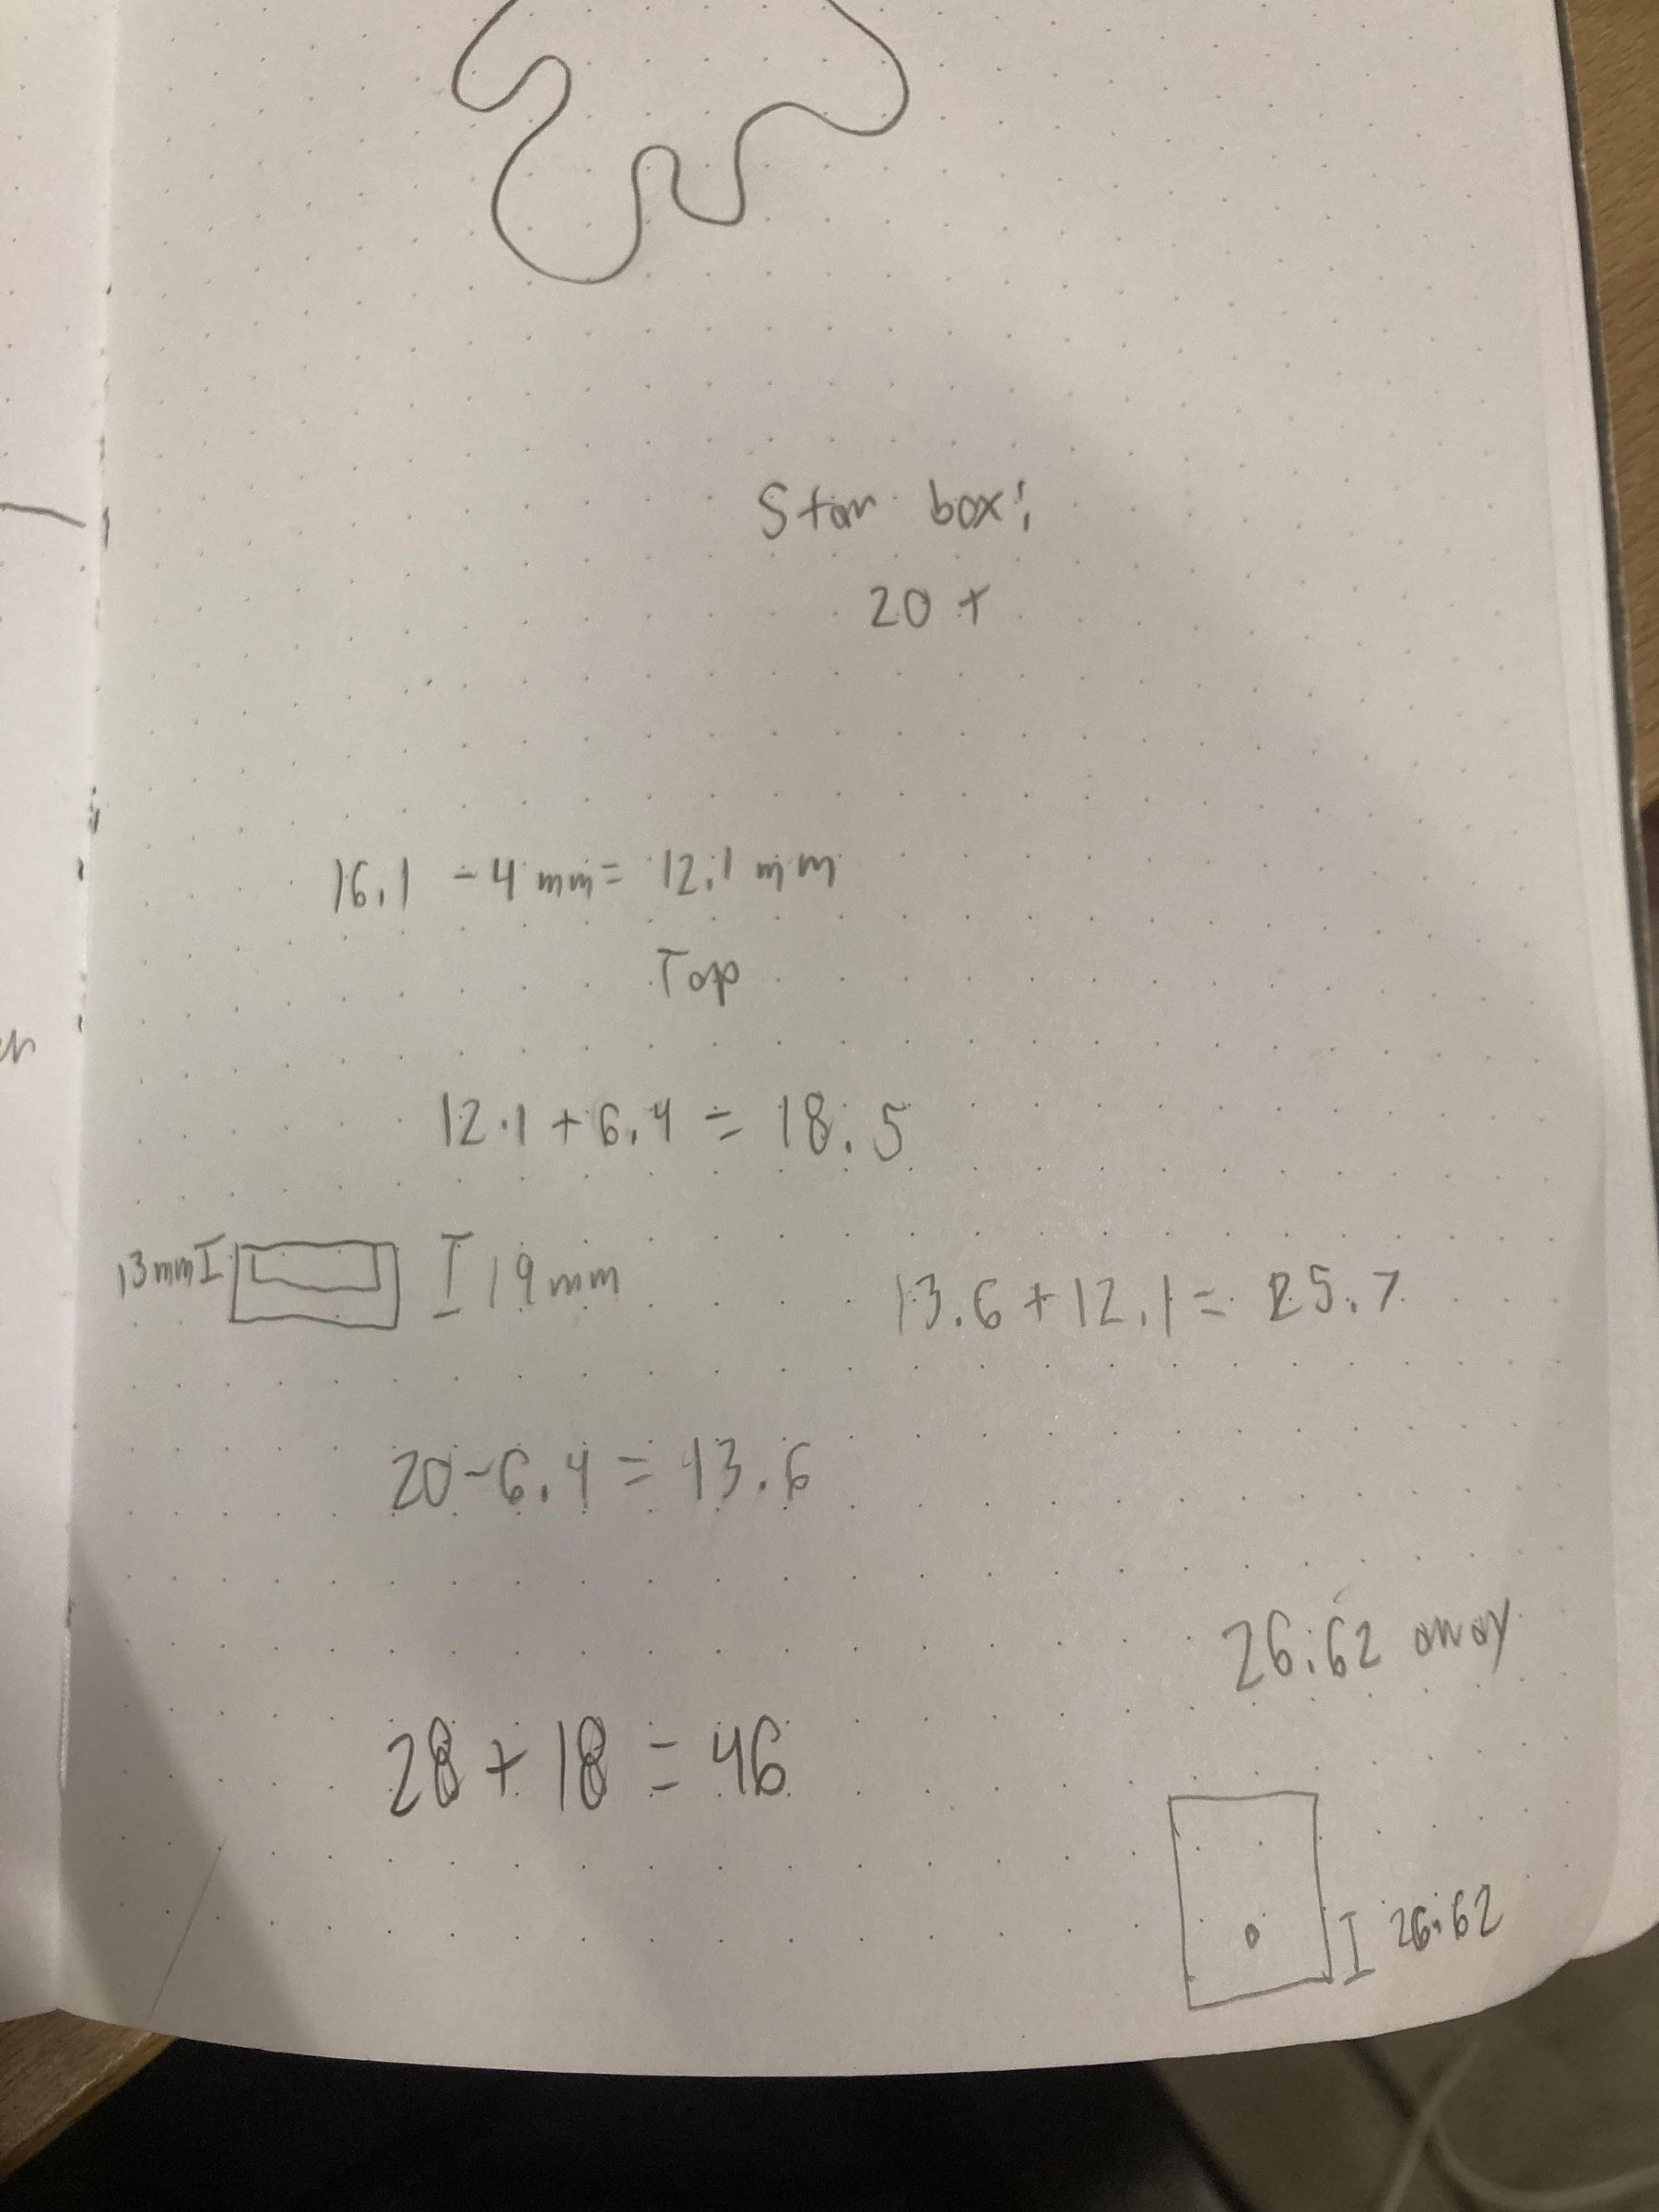 Star box:
20 +
16.1 - 4 mm = 12.1 mm
Top
12.1 + 6.4 = 18.5
13mm 19mm
13.6 + 12.1 = 25.7
20 - 6.4 = 13.6
26.62 away
28 + 18 = 46
26.62